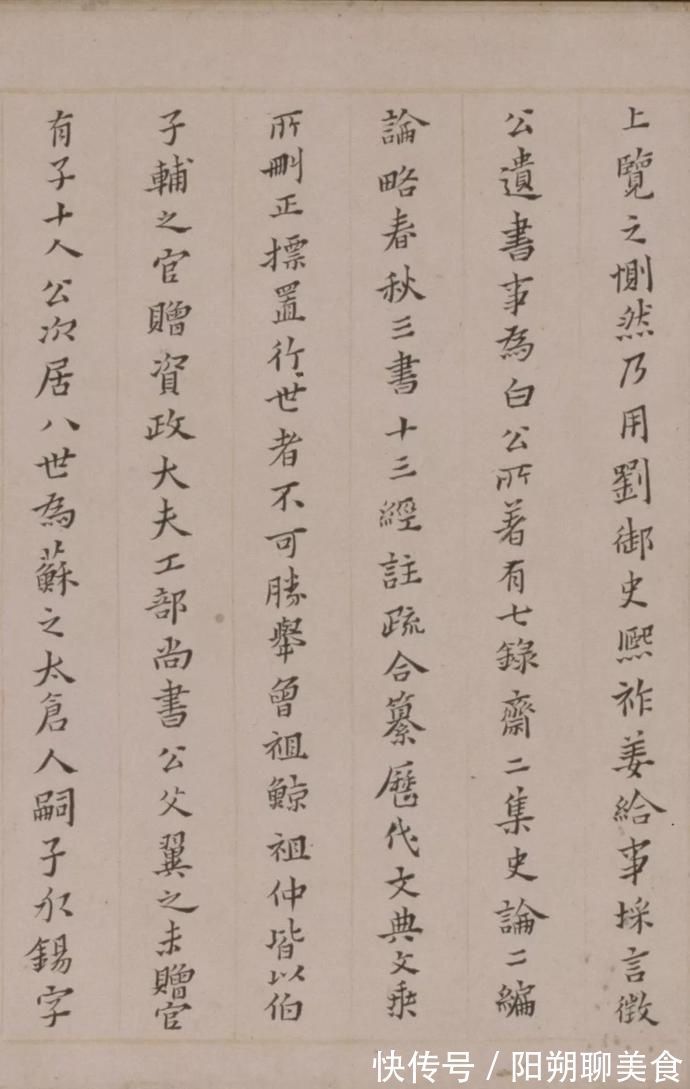 上覽之惻然乃用劉御史熙祚姜給事埰言徵
公遺書事為白公所著有七錄齋二集史論二編
論略春秋三書十三經註疏合纂歷代文典文乘
所刪正標置行世者不可勝舉曾祖鯨祖仲皆以伯
子輔之官贈資政大夫工部尚書公父翼之未贈官
有子十人公次居八世為蘇之太倉人嗣子永錫字
快传号 / 阳朔聊美食